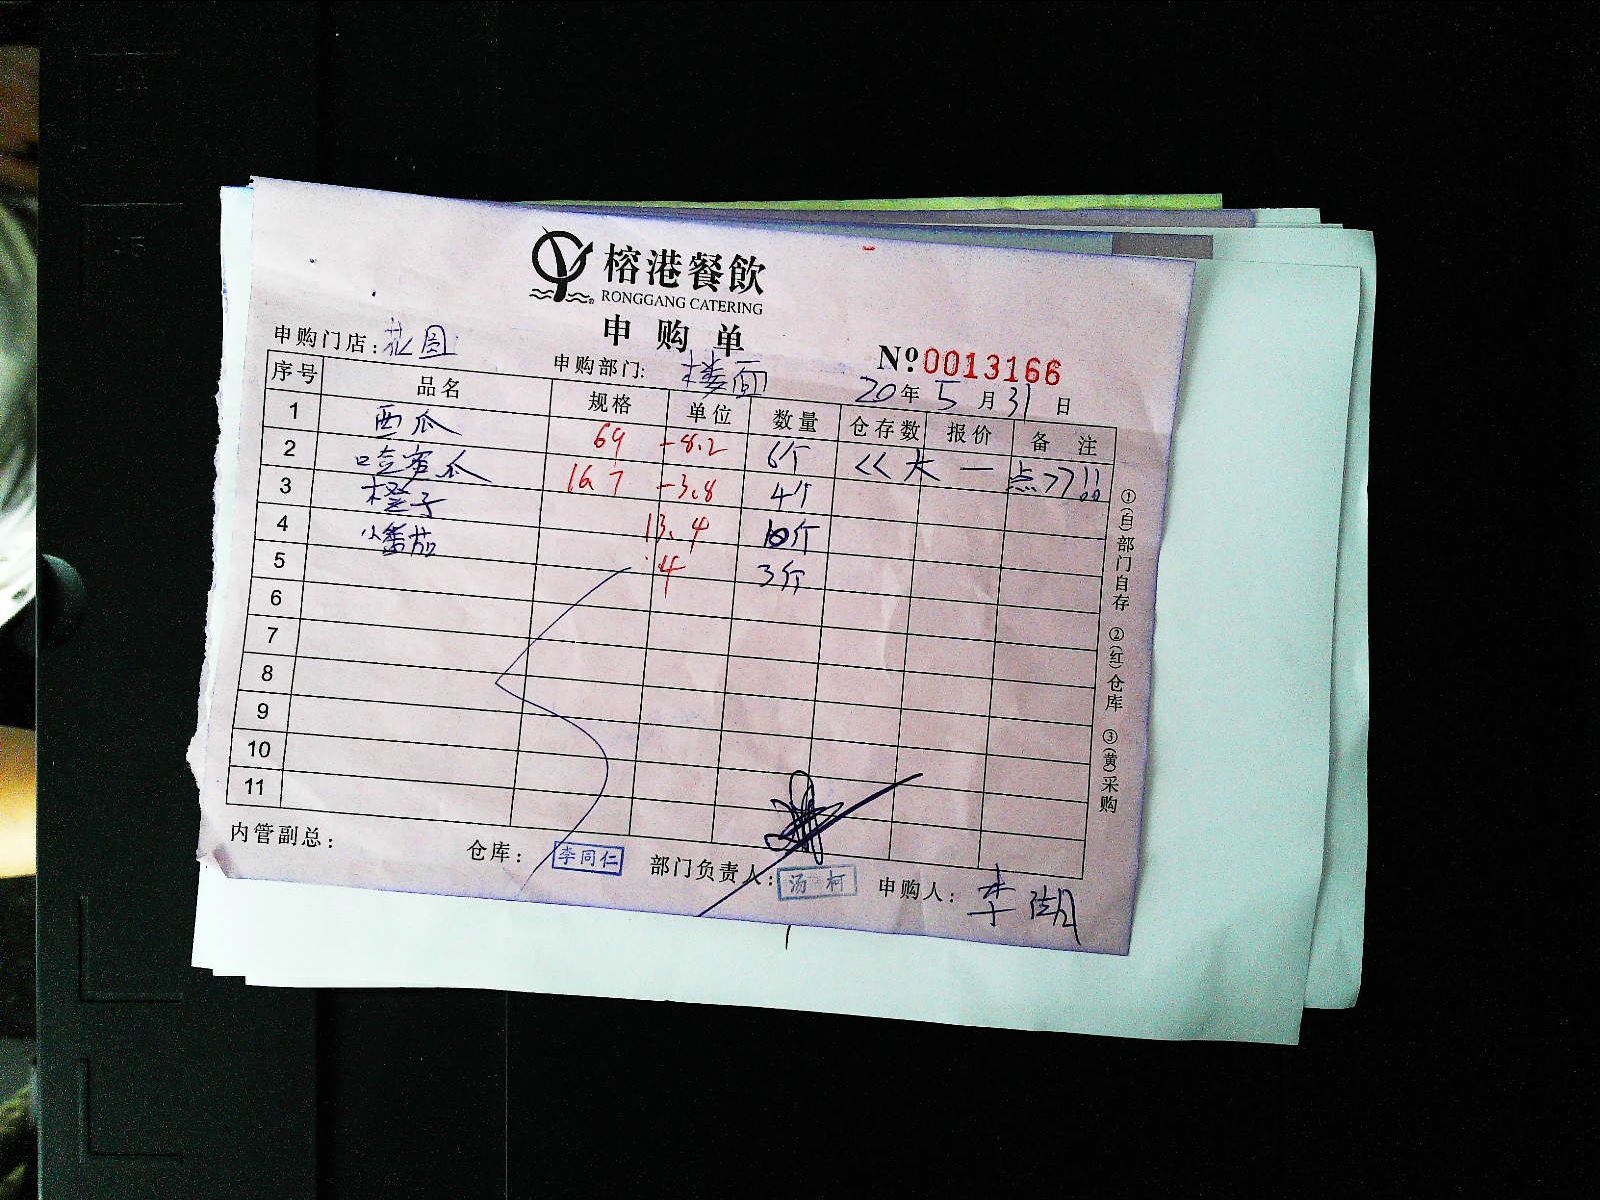 榕港餐飲
RONGGANG CATERING
申购单
№:0013166
申购门店:花園 申购部门:楼面 20年5月31日
序号 品名 规格 单位 数量 仓存数 报价 备注
1 西瓜 69 -8.2 6个 <<大一点>>!!
2 哈蜜瓜 16.7 -3.8 4个
3 橙子 13.4 10个
4 小番茄 4 3斤
5
6
7
8
9
10
11
内管副总: 仓库:李同仁 部门负责人:汤柯 申购人:李湖
①(白)部门自存 ②(红)仓库 ③(黄)采购